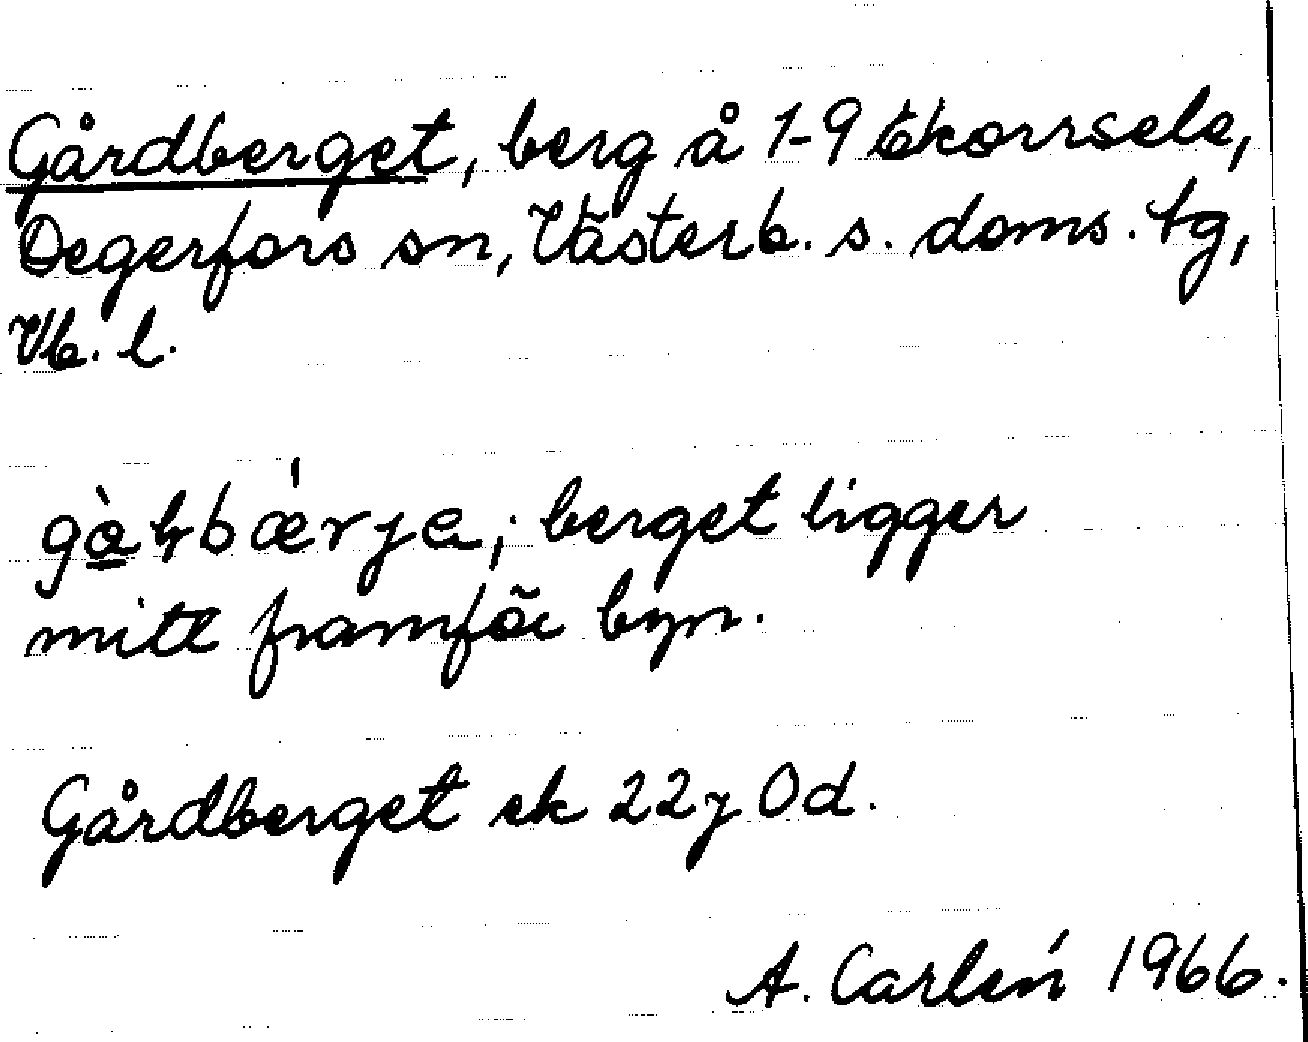 Gårdberget, berg å 1-9 Ekorrsele,
Degerfors sn, Västerb. s. doms. tg,
Vb. l.
berget ligger
mitt framför byn.
Gårdberget ek 22 y Od.
A. Carlén 1966.